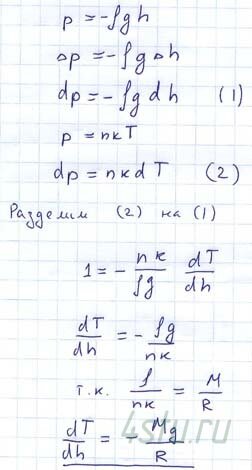 p = -ρgh
Δp = -ρgΔh
dp = -ρgdh (1)
p = nкT
dp = nкdT (2)
Разделим (2) на (1)
1 = - nк/ρg dT/dh
dT/dh = - ρg/nк
т.к. ρ/nк = M/R
dT/dh = - Mg/R
4stu.ru